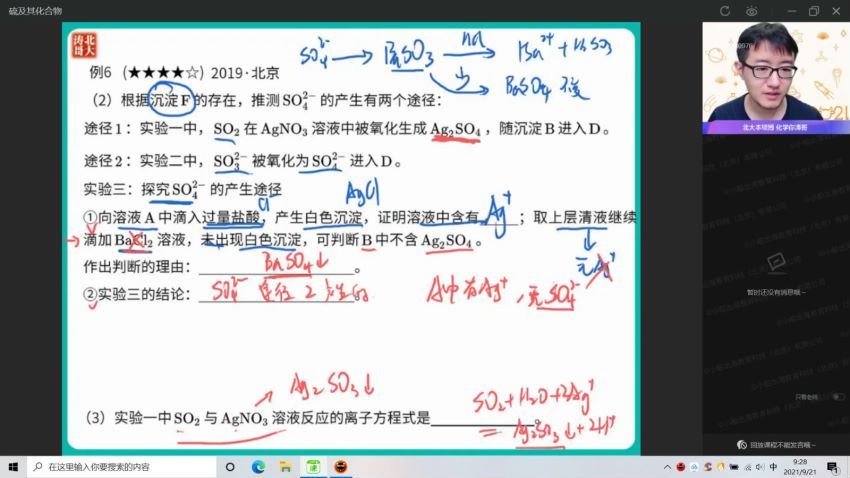 硫及其化合物
北大
涛哥
SO₄²⁻ → BaSO₃ —HCl→ Ba²⁺ + H₂SO₃
BaSO₄
例6 (★★★★☆) 2019·北京
(2) 根据沉淀F的存在，推测SO₄²⁻的产生有两个途径：
途径1：实验一中，SO₂在AgNO₃溶液中被氧化生成Ag₂SO₄，随沉淀B进入D。
途径2：实验二中，SO₃²⁻被氧化为SO₄²⁻进入D。
实验三：探究SO₄²⁻的产生途径
AgCl
Cl
①向溶液A中滴入过量盐酸，产生白色沉淀，证明溶液中含有 Ag⁺ ；取上层清液继续
滴加BaCl₂溶液，未出现白色沉淀，可判断B中不含Ag₂SO₄。
无Ag⁺
作出判断的理由： BaSO₄↓ 。
②实验三的结论： SO₄²⁻ 途径2产生的 。
A中有Ag⁺，无SO₄²⁻
Ag₂SO₃↓
(3) 实验一中SO₂与AgNO₃溶液反应的离子方程式是 。
SO₂+H₂O+2Ag⁺
= Ag₂SO₃↓+2H⁺
北大本硕博 化学你涛哥
暂时还没有消息哦~
只看老师
回放课程不能发言哦~
在这里输入你要搜索的内容
中
9:28
2021/9/21